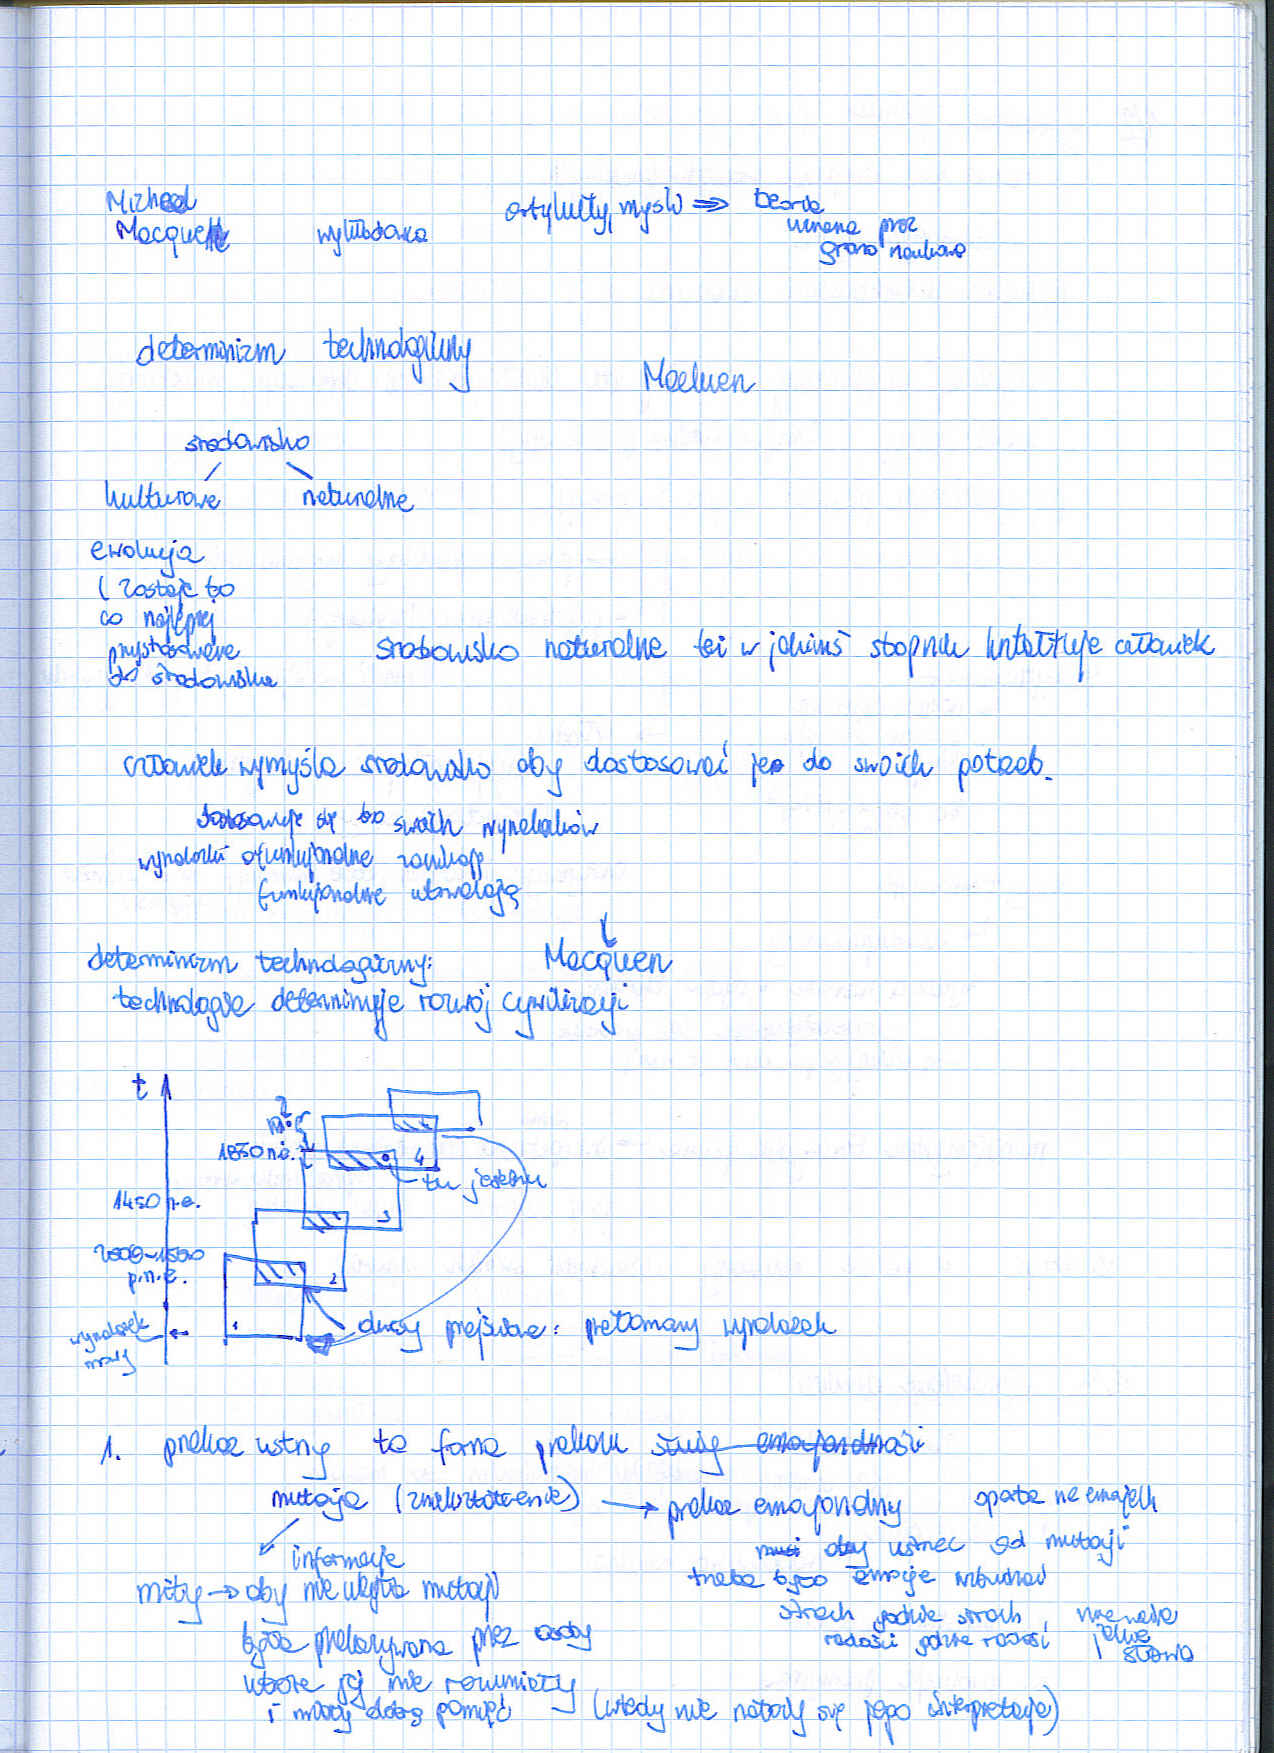 Michael
Macquen wykładowca
artykuły, myśli ⇒ teoria
uznana prez
grono naukowe
determinizm technologiczny
Macluen
środowisko
kulturowe naturalne
ewolucja
( zostaje to
co najlepiej
przystosowane
do środowiska
środowisko naturalne też w jakimś stopniu kształtuje człowiek
człowiek wymyśla środowisko aby dostosować je do swoich potrzeb.
dostosowuje się do swoich wynalazków
wynalazki funkcjonalne
funkcjonalne utrwalają
determinizm technologiczny: Macquen
technologia determinuje rozwój cywilizacji
t
1830 n.e. 4
tu jesteśmy
1450 n.e.
3
2000-1500
p.n.e. 2
wynalazek
mowy
1
okresy przejściowe: przełomowy wynalazek
1. przekaz ustny to forma przekazu służy emocjonalności
mutacja (zniekształcenie) → przekaz emocjonalny oparta na emocjach
informacje
aby ustrzec od mutacji
mity → aby nie uległa mutacji
trzeba było emocje wzbudzać
strach gdzie strach, nie
radości gdzie radość
słowa
była przekazywana przez osoby
które jej nie rozumiały
i miały dobrą pamięć (wtedy nie natoży się jego interpretacja)